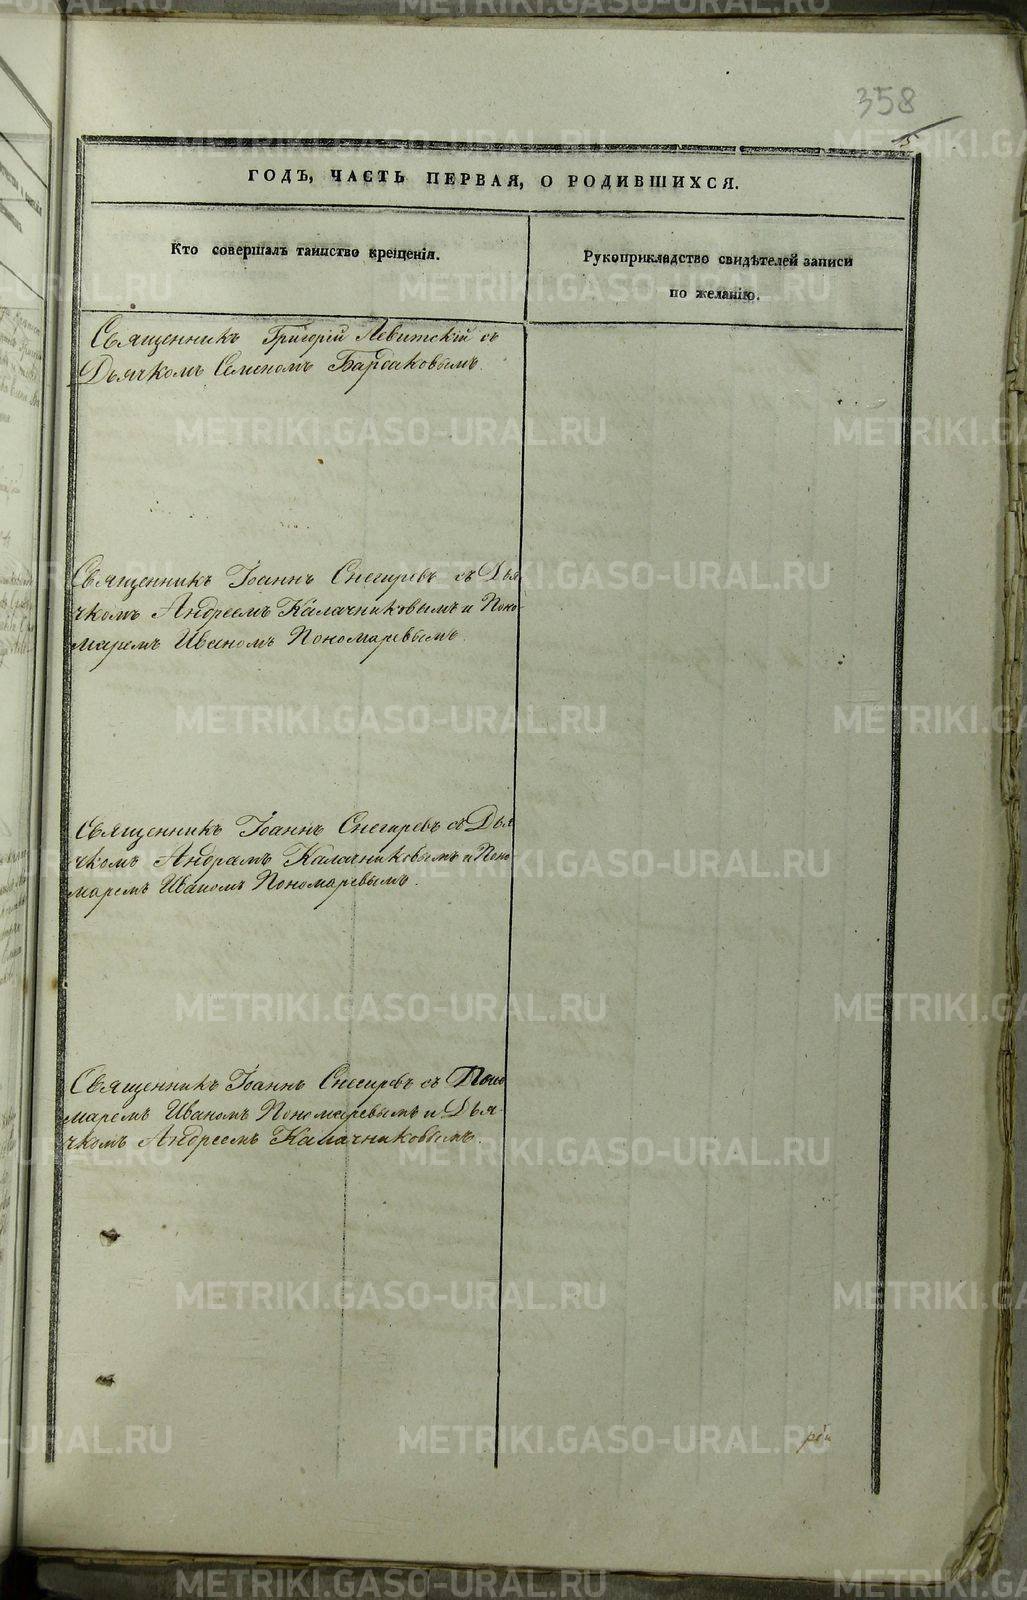 358
ГОДЪ, ЧАСТЬ ПЕРВАЯ, О РОДИВШИХСЯ.
Кто совершалъ таинство крещенія.
Рукоприкладство свидѣтелей записи
по желанію.
Священникъ Григорій Левитскій съ
Дьячкомъ Семеномъ Барсаковымъ.
Священникъ Іоаннъ Снегиревъ съ Дья
чкомъ Андреемъ Калачниковымъ и Поно-
маремъ Иваномъ Пономаревымъ.
Священникъ Іоаннъ Снегиревъ съ Дья
чкомъ Андреамъ Калачниковымъ и Поно
маремъ Иваномъ Пономаревымъ.
Священникъ Іоаннъ Снегиревъ съ Поно
маремъ Иваномъ Пономаревымъ и Дья-
чкомъ Андреемъ Калачниковымъ.
METRIKI.GASO-URAL.RU